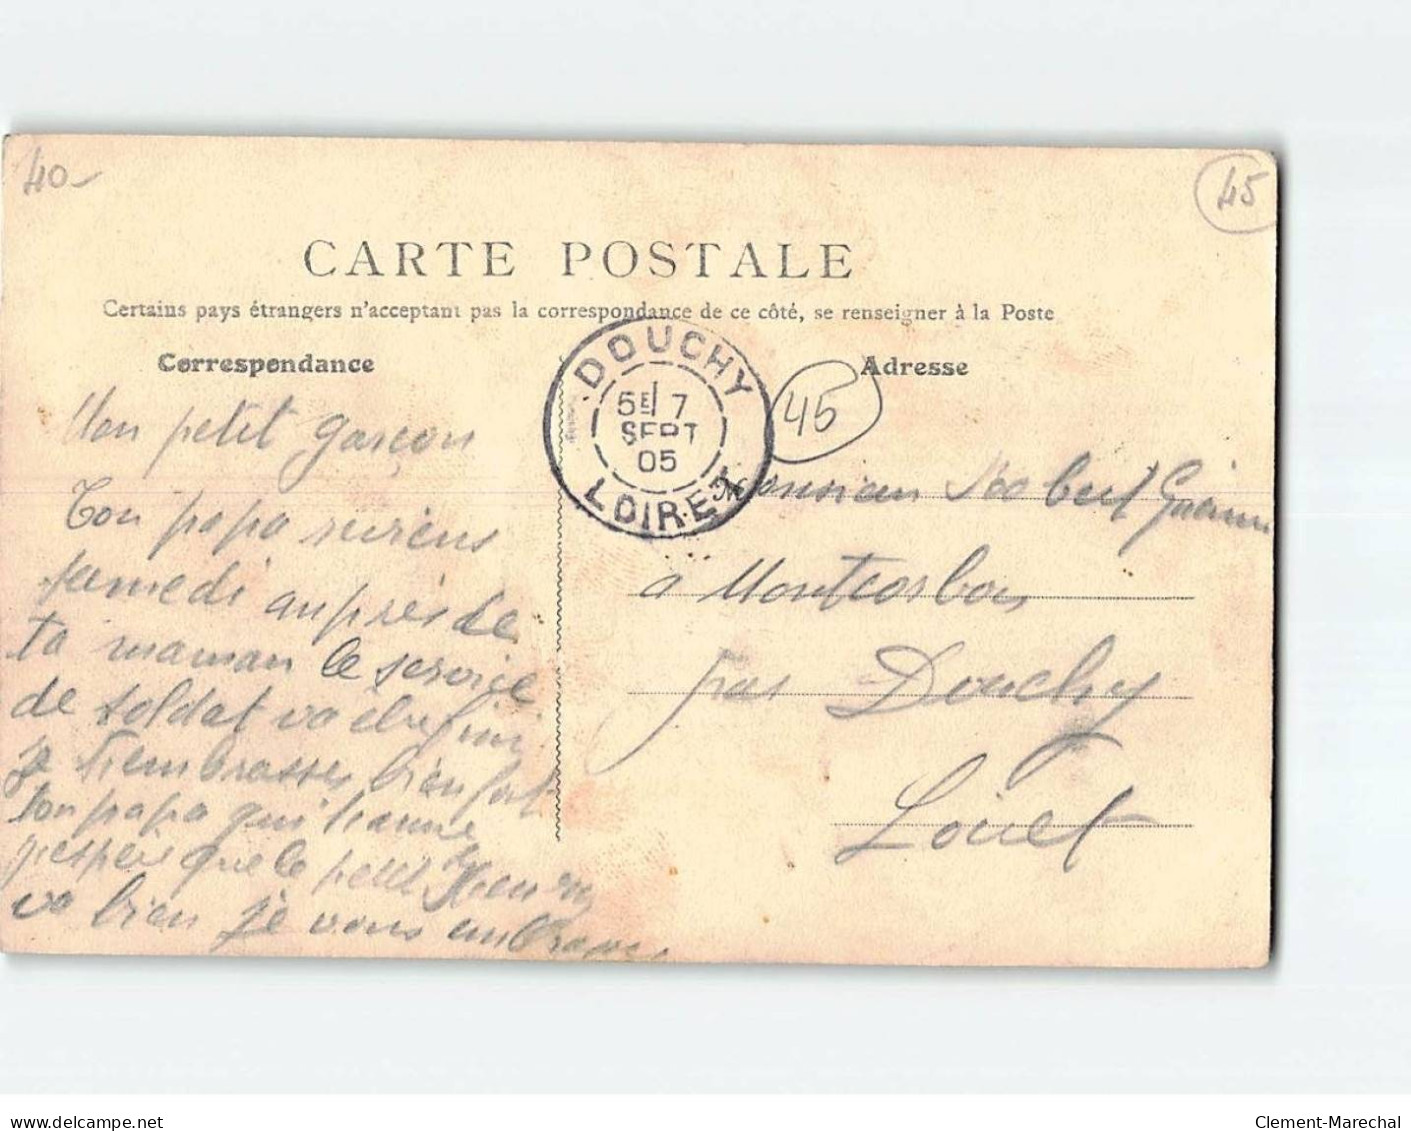 40-
45
CARTE POSTALE
Certains pays étrangers n'acceptant pas la correspondance de ce côté, se renseigner à la Poste
Correspondance
Adresse
DOUCHY
5E/ 7
SEPT
05
LOIRET
45
Mon petit garçon
Ton papa reviens
samedi auprés de
ta maman le service
de soldat va être fini
je t'embrasses bien fort
ton papa qui t'aime
j'espère que le petit Henry
va bien je vous embrasses
Monsieur Robert
à Montcorbon
par Douchy
Loiret
www.delcampe.net
Clement-Marechal